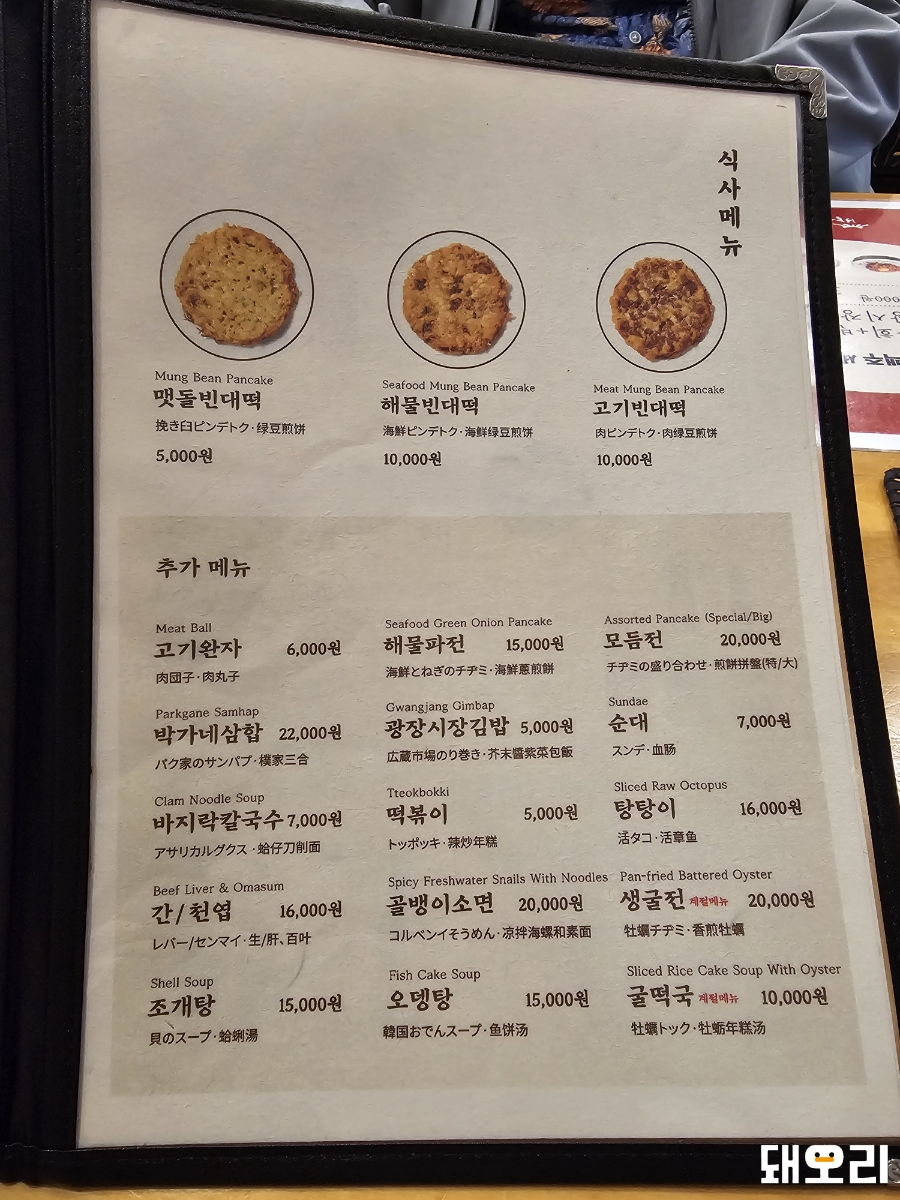 식사메뉴
Mung Bean Pancake
맷돌빈대떡
挽き臼ピンデトク·绿豆煎饼
5,000원
Seafood Mung Bean Pancake
해물빈대떡
海鮮ピンデトク·海鲜绿豆煎饼
10,000원
Meat Mung Bean Pancake
고기빈대떡
肉ピンデトク·肉绿豆煎饼
10,000원
추가 메뉴
Meat Ball
고기완자 6,000원
肉団子·肉丸子
Seafood Green Onion Pancake
해물파전 15,000원
海鮮とねぎのチヂミ·海鮮蔥煎餅
Assorted Pancake (Special/Big)
모듬전 20,000원
チヂミの盛り合わせ·煎餅拼盤(特/大)
Parkgane Samhap
박가네삼합 22,000원
パク家のサンハプ·樸家三合
Gwangjang Gimbap
광장시장김밥 5,000원
広蔵市場のり巻き·芥末醬紫菜包飯
Sundae
순대 7,000원
スンデ·血肠
Clam Noodle Soup
바지락칼국수 7,000원
アサリカルグクス·蛤仔刀削面
Tteokbokki
떡볶이 5,000원
トッポッキ·辣炒年糕
Sliced Raw Octopus
탕탕이 16,000원
活タコ·活章鱼
Beef Liver & Omasum
간/천엽 16,000원
レバー/センマイ·生/肝、百叶
Spicy Freshwater Snails With Noodles
골뱅이소면 20,000원
コルベンイそうめん·凉拌海螺和素面
Pan-fried Battered Oyster
생굴전 계절메뉴 20,000원
牡蠣チヂミ·香煎牡蠣
Shell Soup
조개탕 15,000원
貝のスープ·蛤蜊湯
Fish Cake Soup
오뎅탕 15,000원
韓国おでんスープ·鱼饼汤
Sliced Rice Cake Soup With Oyster
굴떡국 계절메뉴 10,000원
牡蠣トック·牡蛎年糕汤
돼오리